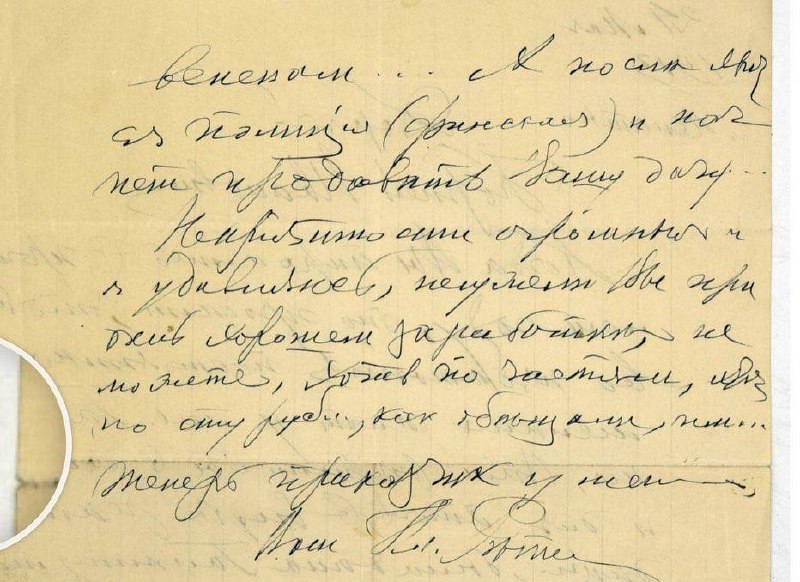 венеком ... А после явит
ся полиція (финская) и нач
нет продавать Вашу дачу...
Непріятности огромныя и
я удивляюсь, неужели Вы при
очень хорошем заработке, не
можете, хотя по частям,
по сту рубл., как обещали,
Теперь приходит к
Ваш Вл.